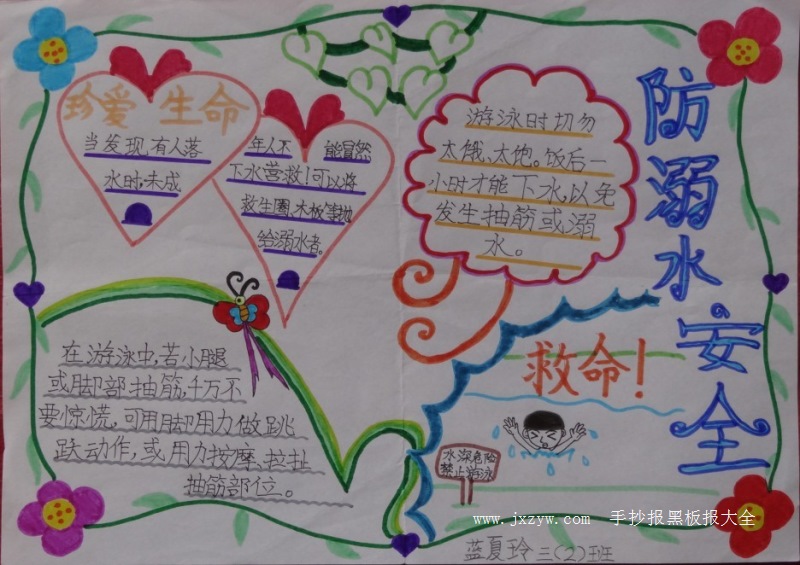 防溺水安全
珍爱生命
当发现有人落
水时,未成
年人不能冒然
下水营救!可以将
救生圈、木板等抛
给溺水者。
游泳时切勿
太饿、太饱。饭后一
小时才能下水,以免
发生抽筋或溺
水。
在游泳中,若小腿
或脚部抽筋,千万不
要惊慌,可用脚用力做跳
跃动作,或用力按摩、拉扯
抽筋部位。
救命!
水深危险
禁止游泳
www.jxzyw.com 手抄报黑板报大全
蓝夏玲 三(2)班